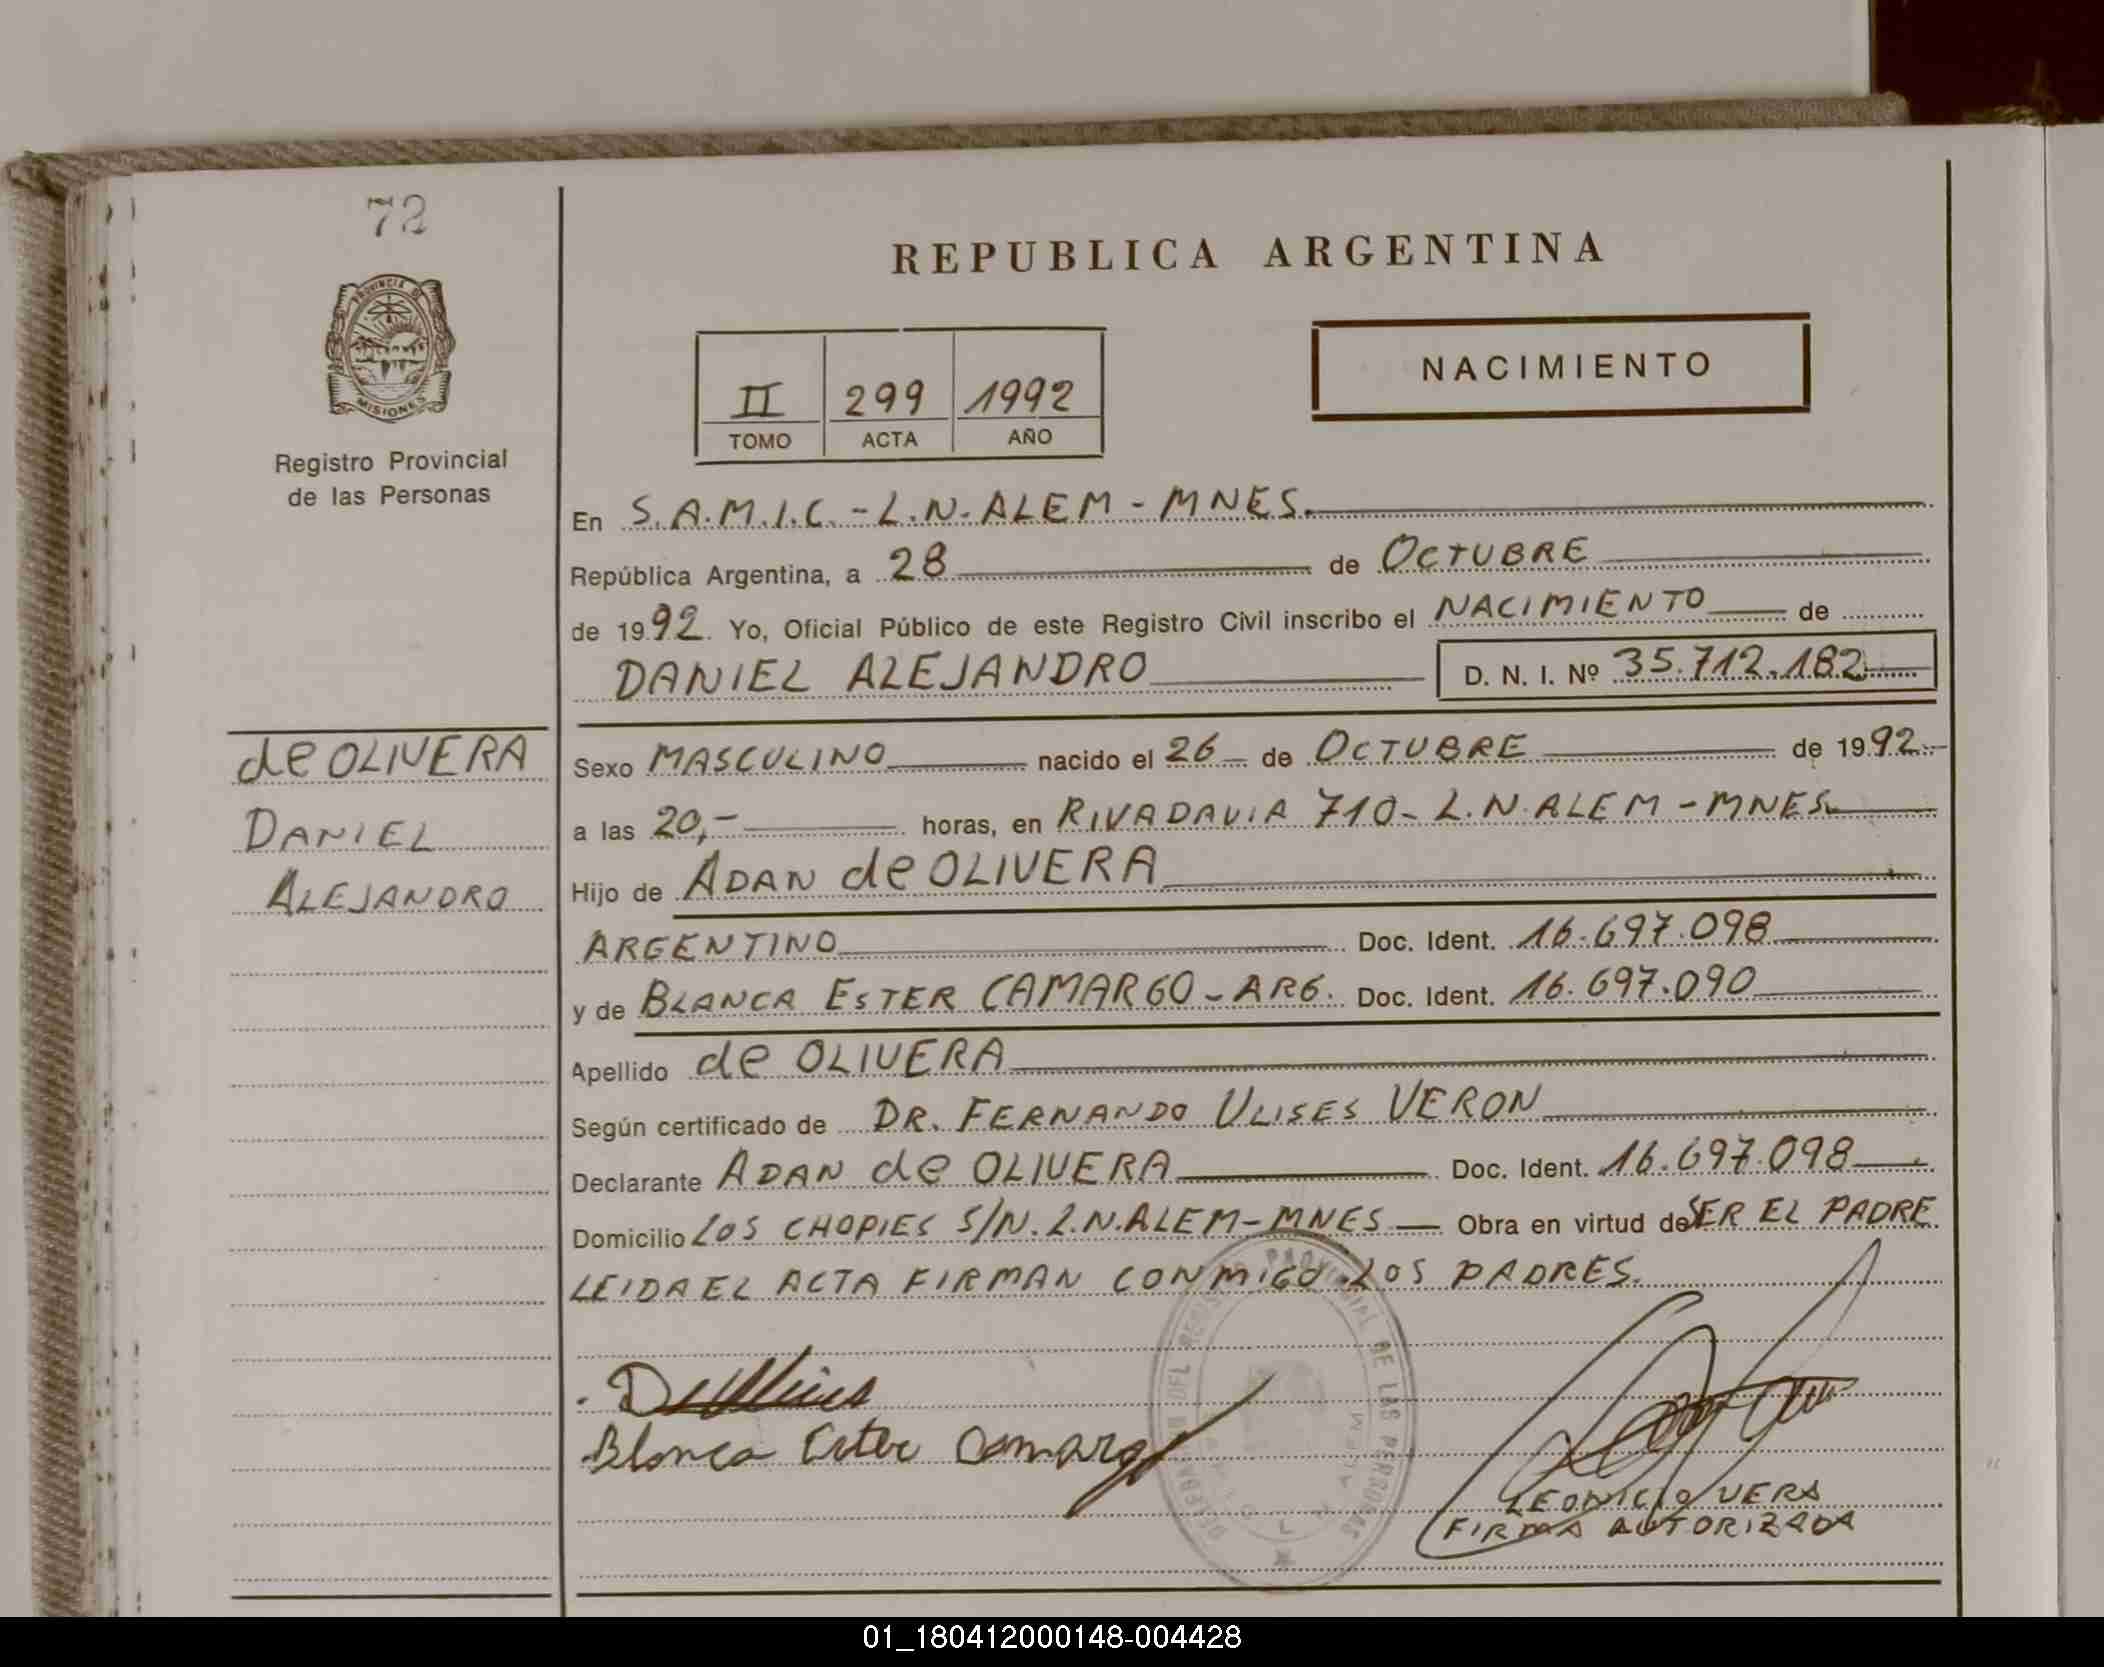 72
REPUBLICA ARGENTINA
PROVINCIA DE
MISIONES
Registro Provincial
de las Personas
II 299 1992
TOMO ACTA AÑO
NACIMIENTO
En S.A.M.I.C. - L.N. ALEM - MNES.
República Argentina, a 28 de OCTUBRE
de 1992. Yo, Oficial Público de este Registro Civil inscribo el NACIMIENTO de
DANIEL ALEJANDRO D. N. I. Nº 35.712.182
de OLIVERA
DANIEL
ALEJANDRO
Sexo MASCULINO nacido el 26 de OCTUBRE de 1992.
a las 20,- horas, en RIVADAVIA 710 - L.N. ALEM - MNES.
Hijo de ADAN de OLIVERA
ARGENTINO Doc. Ident. 16.697.098
y de BLANCA ESTER CAMARGO - ARG. Doc. Ident. 16.697.090
Apellido de OLIVERA
Según certificado de DR. FERNANDO ULISES VERON
Declarante ADAN de OLIVERA Doc. Ident. 16.697.098
Domicilio LOS CHOPIES S/N. L.N. ALEM - MNES Obra en virtud de SER EL PADRE
LEIDA EL ACTA FIRMAN CONMIGO LOS PADRES.
Blanca Ester Camargo
LEONICIO VERA
FIRMA AUTORIZADA
01_180412000148-004428